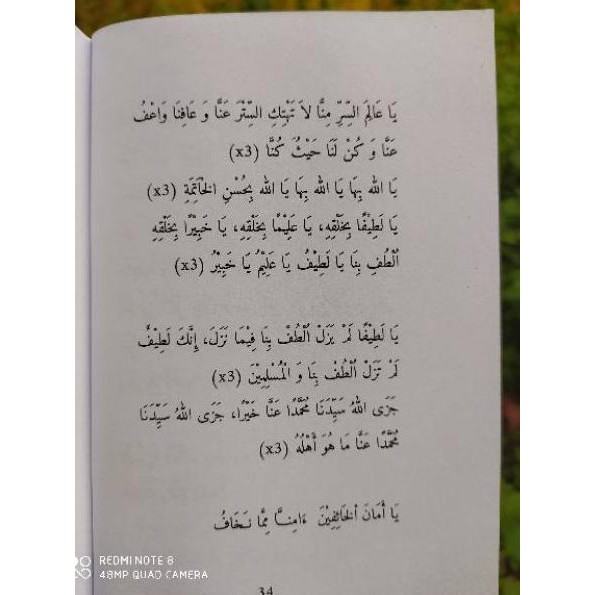 يَا عَالِمَ السِّرِّ مِنَّا لاَ تَهْتِكِ السِّتْرَ عَنَّا وَ عَافِنَا وَاعْفُ
عَنَّا وَ كُنْ لَنَا حَيْثُ كُنَّا (x3)
يَا الله بِهَا يَا الله بِهَا يَا الله بِحُسْنِ الْخَاتِمَةِ (x3)
يَا لَطِيْفًا بِخَلْقِهِ، يَا عَلِيْمًا بِخَلْقِهِ، يَا خَبِيْرًا بِخَلْقِهِ
اُلْطُفِ بِنَا يَا لَطِيْفُ يَا عَلِيْمُ يَا خَبِيْرُ (x3)
يَا لَطِيْفًا لَمْ يَزَلْ اُلْطُفْ بِنَا فِيْمَا نَزَلَ، إِنَّكَ لَطِيْفٌ
لَمْ تَزَلْ اُلْطُفْ بِنَا وَ الْمُسْلِمِيْنَ (x3)
جَزَى اللهُ سَيِّدَنَا مُحَمَّدًا عَنَّا خَيْرًا، جَزَى اللهُ سَيِّدَنَا
مُحَمَّدًا عَنَّا مَا هُوَ أَهْلُهُ (x3)
يَا أَمَانَ الْخَائِفِيْنَ ءَامِنَّا مِمَّا نَخَافُ
REDMI NOTE 8
48MP QUAD CAMERA
34